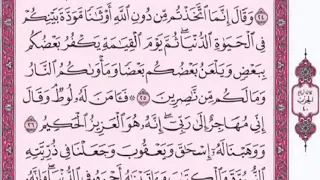 ﴿٢٤﴾ وَقَالَ إِنَّمَا ٱتَّخَذْتُم مِّن دُونِ ٱللَّهِ أَوْثَـٰنًا مَّوَدَّةَ بَيْنِكُمْ
فِى ٱلْحَيَوٰةِ ٱلدُّنْيَا ۖ ثُمَّ يَوْمَ ٱلْقِيَـٰمَةِ يَكْفُرُ بَعْضُكُم
بِبَعْضٍ وَيَلْعَنُ بَعْضُكُم بَعْضًا وَمَأْوَىٰكُمُ ٱلنَّارُ
وَمَا لَكُم مِّن نَّـٰصِرِينَ ﴿٢٥﴾ ۞ فَـَٔامَنَ لَهُۥ لُوطٌ ۘ وَقَالَ
إِنِّى مُهَاجِرٌ إِلَىٰ رَبِّىٓ ۖ إِنَّهُۥ هُوَ ٱلْعَزِيزُ ٱلْحَكِيمُ ﴿٢٦﴾
وَوَهَبْنَا لَهُۥٓ إِسْحَـٰقَ وَيَعْقُوبَ وَجَعَلْنَا فِى ذُرِّيَّتِهِ
ٱلنُّبُوَّةَ وَٱلْكِتَـٰبَ وَءَاتَيْنَـٰهُ أَجْرَهُۥ فِى ٱلدُّنْيَا ۖ وَإِنَّهُۥ